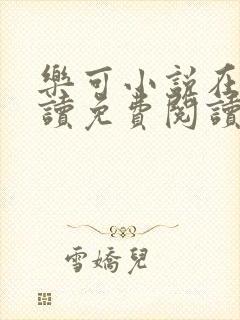 樂可小説在
讀免費閱讀
雪嬌兒